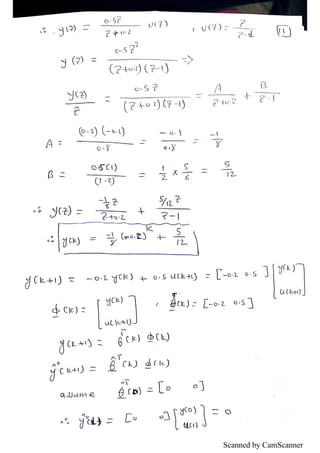 ∴ y(z) = 0.5z / (z+0.2) U(z) , U(z) = z / (z-1) (11)
y(z) = 0.5z² / ((z+0.2)(z-1)) =>
y(z)/z = 0.5z / ((z+0.2)(z-1)) = A / (z+0.2) + B / (z-1)
A = (0.5)(-0.2) / 0.8 = -0.1 / 0.8 = -1/8
B = 0.5(1) / (1.2) = 1/2 × 5/6 = 5/12
∴ y(z) = -1/8 z / (z+0.2) + 5/12 z / (z-1)
∴ y(k) = -1/8 (-0.2)^k + 5/12
y(k+1) = -0.2 y(k) + 0.5 u(k+1) = [-0.2 0.5] [y(k) u(k+1)]
ϕ(k) = [y(k) u(k+1)] , θ(k) = [-0.2 0.5]
y(k+1) = θ^T(k) ϕ(k)
ŷ(k+1) = θ̂^T(k) ϕ(k)
assume θ̂^T(0) = [0 0]
∴ ŷ(1) = [0 0] [y(0) u(1)] = 0
Scanned by CamScanner